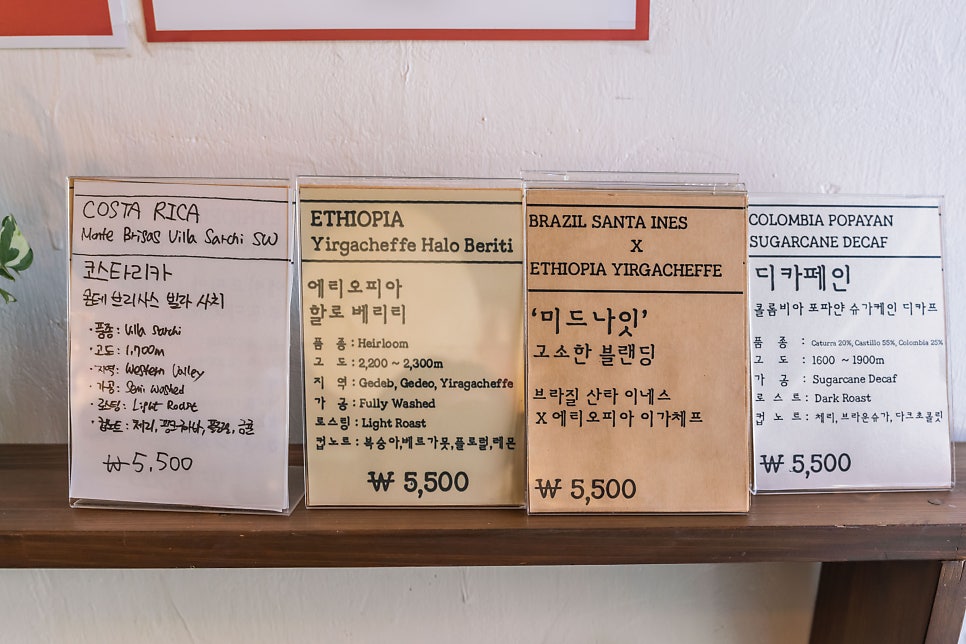 COSTA RICA
Monte Brisas Villa Sarchi SW
코스타리카
몬테 브리사스 빌라 사치
· 품종 : Villa Sarchi
· 고도 : 1,700m
· 지역 : Western Valley
· 가공 : Semi Washed
· 로스팅 : Light Roast
· 컵노트 : 체리,
₩ 5,500
ETHIOPIA
Yirgacheffe Halo Beriti
에티오피아
할로 베리티
품 종 : Heirloom
고 도 : 2,200 ~ 2,300m
지 역 : Gedeb, Gedeo, Yiragacheffe
가 공 : Fully Washed
로스팅 : Light Roast
컵노트 : 복숭아,베르가못,플로럴,레몬
₩ 5,500
BRAZIL SANTA INES
X
ETHIOPIA YIRGACHEFFE
‘미드나잇’
고소한 블랜딩
브라질 산타 이네스
X 에티오피아 이가체프
₩ 5,500
COLOMBIA POPAYAN
SUGARCANE DECAF
디카페인
콜롬비아 포파얀 슈가케인 디카프
품 종 : Caturra 20%, Castillo 55%, Colombia 25%
고 도 : 1600 ~ 1900m
가 공 : Sugarcane Decaf
로 스 트 : Dark Roast
컵 노 트 : 체리, 브라운슈가, 다크초콜릿
₩ 5,500